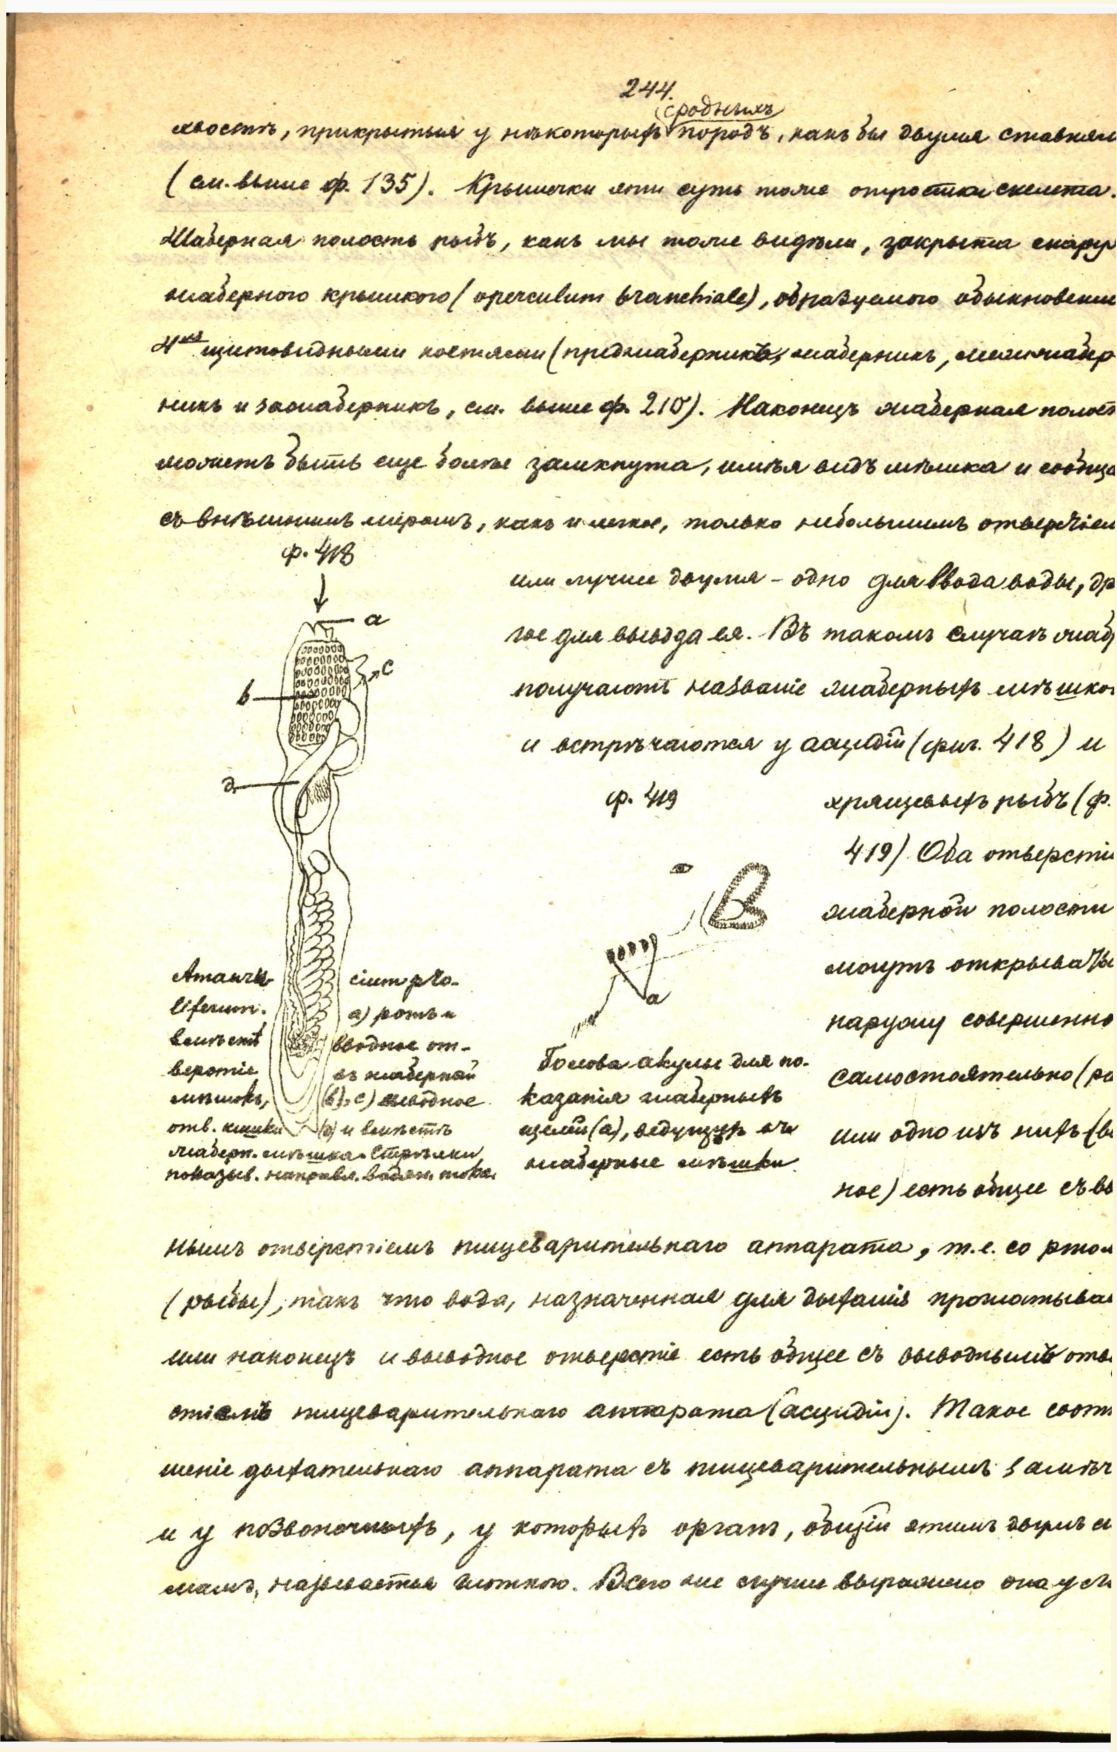 244.
сродныхъ
хвостъ, прикрытыя у нѣкоторыхъ породъ, какъ бы двумя ставнями
(см. выше ф. 135). Крышечки эти суть тоже отростки скелета.
Жаберная полость рыбъ, какъ мы тоже видѣли, закрыта снару
жаберного крышкою (operculum branchiale), образуемого обыкновенно
4мя щитовидными костями (преджаберникъ, жаберникъ, межжабер
никъ и зажаберникъ, см. выше ф. 210). Наконецъ жаберная полост
можетъ быть еще болѣе замкнута, имѣя видъ мѣшка и сообща
съ внѣшнимъ міромъ, какъ и легкое, только небольшимъ отверстіем
ф. 418
или лучше двумя - одно для ввода воды, др
гое для вывода ея. Въ такомъ случаѣ жаб
получаютъ названіе жаберныхъ мѣшков
и встрѣчаются у асцидій (фиг. 418) и
a
c
b
д
ф. 419
хрящевыхъ рыбъ (ф.
419) Оба отверстія
жаберной полости
могутъ открыва
наружу совершенно
самостоятельно (
или одно изъ нихъ (в
ное) есть общее съ вв
a
сіum pro-
liferum. а) ротъ и
вмѣстѣ вводное от-
верстіе въ жаберный
мѣшокъ, (b), с) выводное
отв. кишки (д) и вмѣстѣ
жаберн. мѣшка. Стрѣлки
показыв. направл. водян. тока.
Голова акулы для по-
казанія жаберныхъ
щелей (а), ведущихъ въ
жаберные мѣшки
нымъ отверстіемъ пищеварительнаго аппарата, т.е. со ртом
(рыбы), такъ что вода, назначенная для дыханія проглатывае
или наконецъ и выводное отверстіе есть общее съ выводнымъ отве
стіемъ пищеварительнаго аппарата (асцидіи). Такое соотн
шеніе дыхательнаго аппарата съ пищеварительнымъ замѣч
и у позвоночныхъ, у которыхъ органъ, общій этимъ двумъ си
мамъ, называется глоткою. Всего же лучше выражено она у